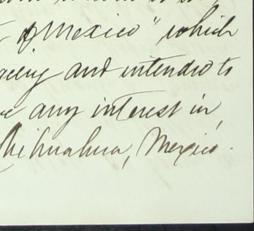 of Mexico" which
and intends to
any interest in
Chihuahua, Mexico.